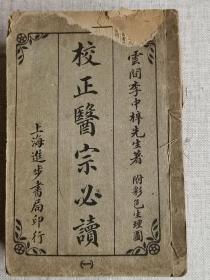 雲間李中梓先生著 附彩色生理圖
校正醫宗必讀
(一)
上海進步書局印行